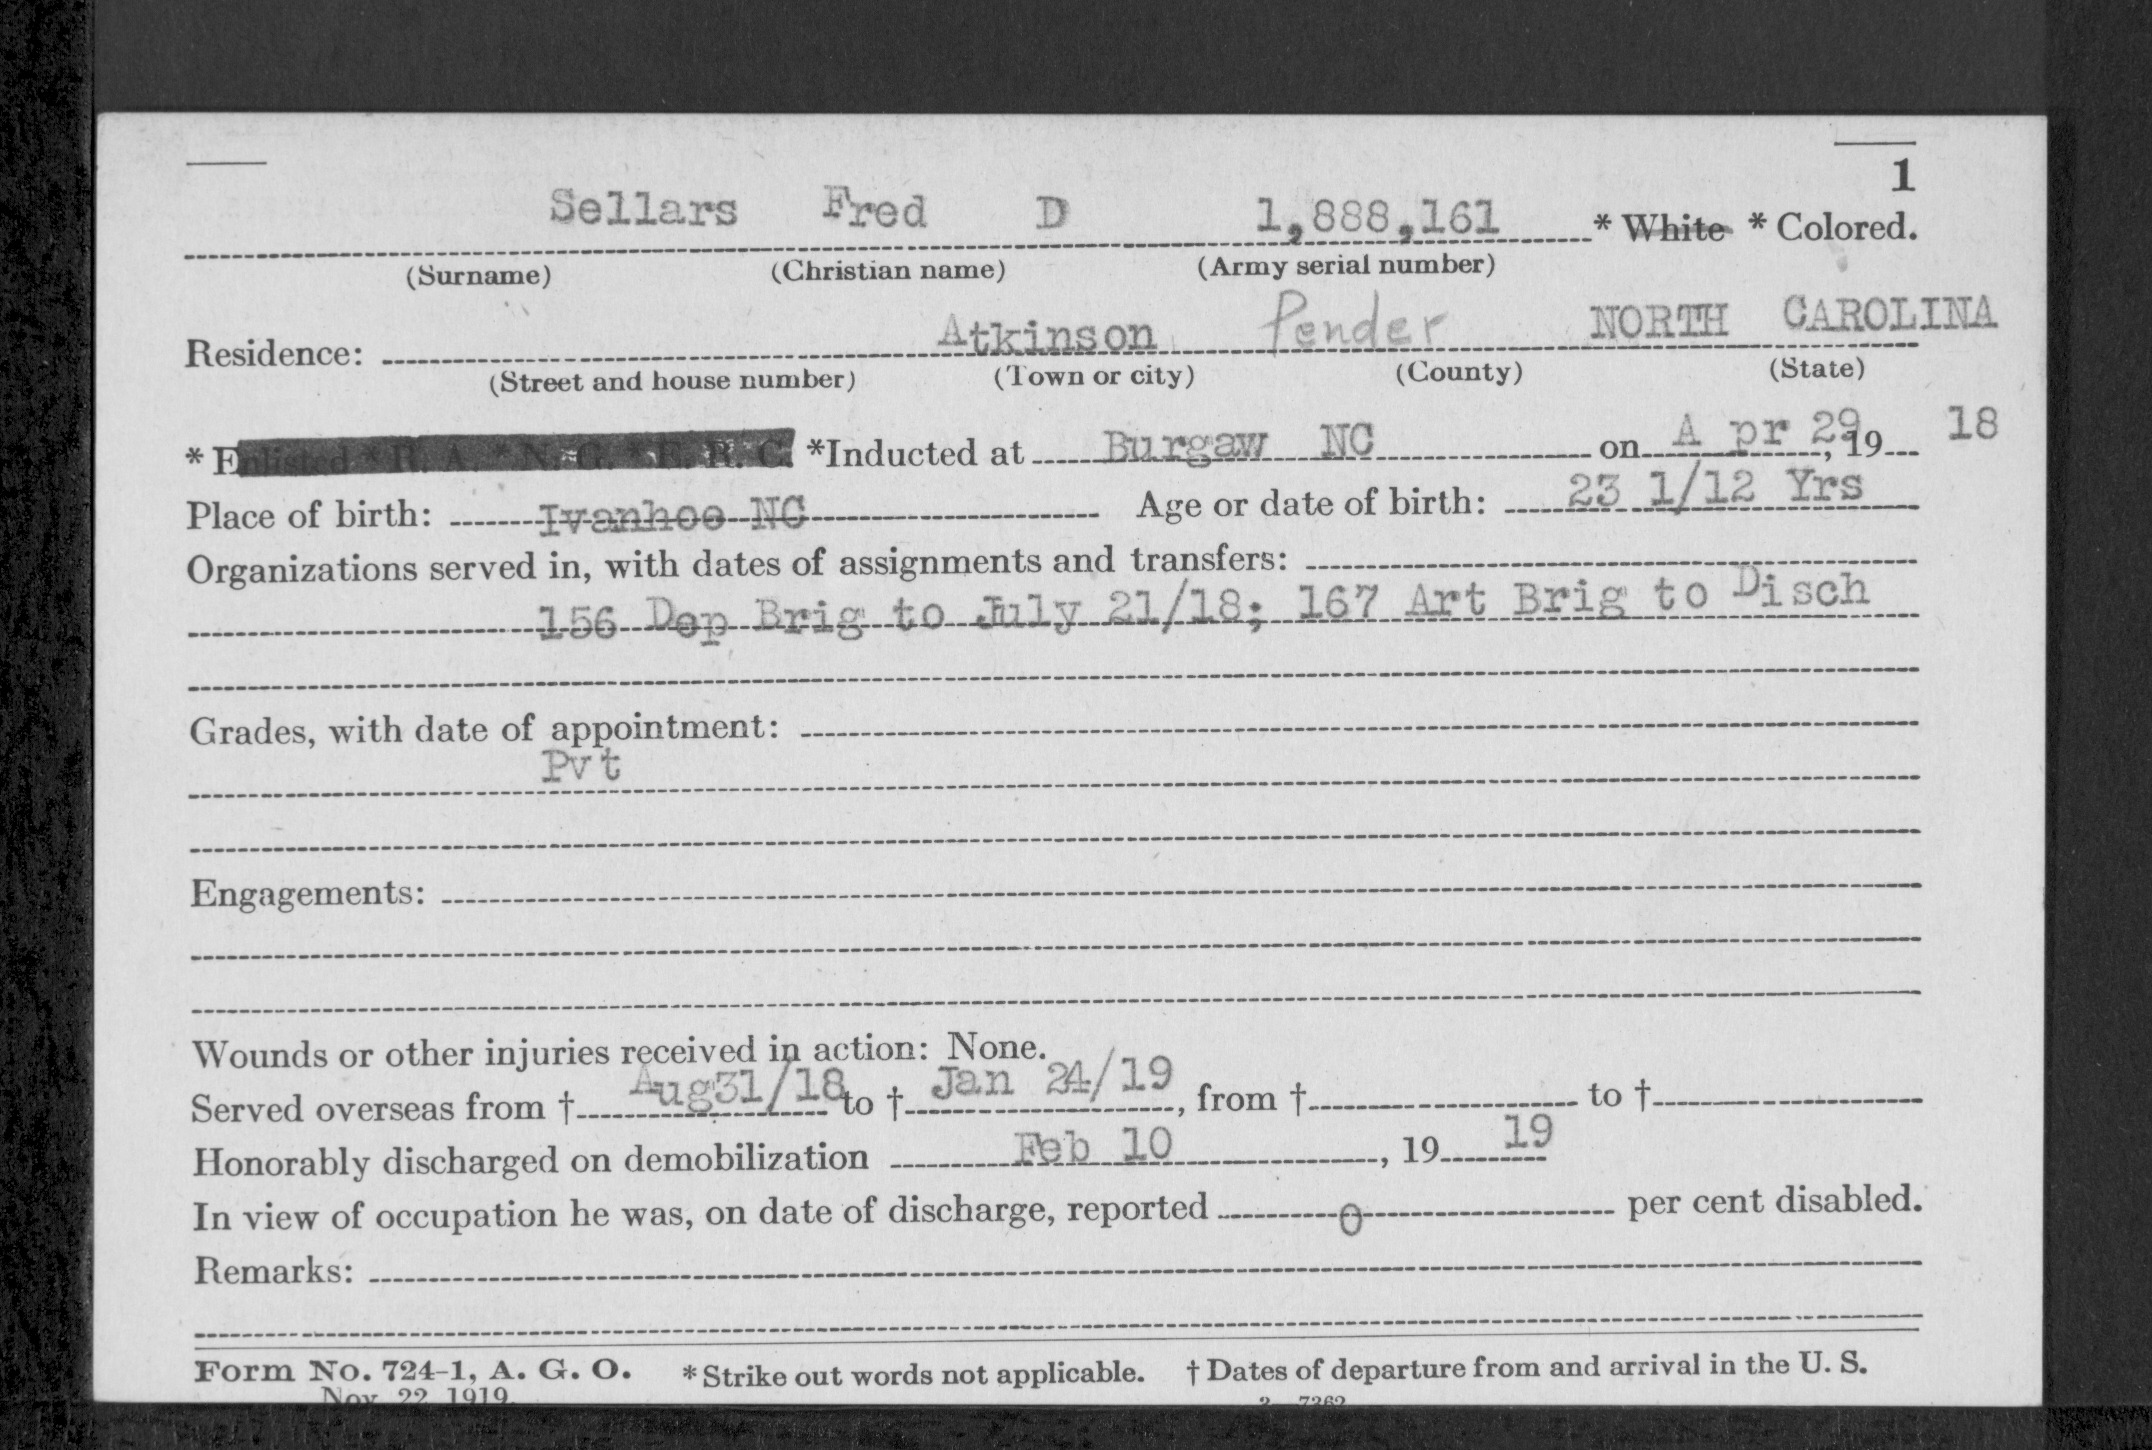 1
Sellars Fred D 1,888,161 * White * Colored.
(Surname) (Christian name) (Army serial number)
Residence: Atkinson Pender NORTH CAROLINA
(Street and house number) (Town or city) (County) (State)
* Enlisted * R. A. * N. G. * E. R. C. *Inducted at Burgaw NC on A pr 29, 19 18
Place of birth: Ivanhoe NC Age or date of birth: 23 1/12 Yrs
Organizations served in, with dates of assignments and transfers:
156 Dep Brig to July 21/18; 167 Art Brig to Disch
Grades, with date of appointment:
Pvt
Engagements:
Wounds or other injuries received in action: None.
Served overseas from † Aug31/18 to † Jan 24/19, from † to †
Honorably discharged on demobilization Feb 10, 19 19
In view of occupation he was, on date of discharge, reported 0 per cent disabled.
Remarks:
Form No. 724-1, A. G. O. * Strike out words not applicable. † Dates of departure from and arrival in the U. S.
Nov. 22, 1919. 3—7362